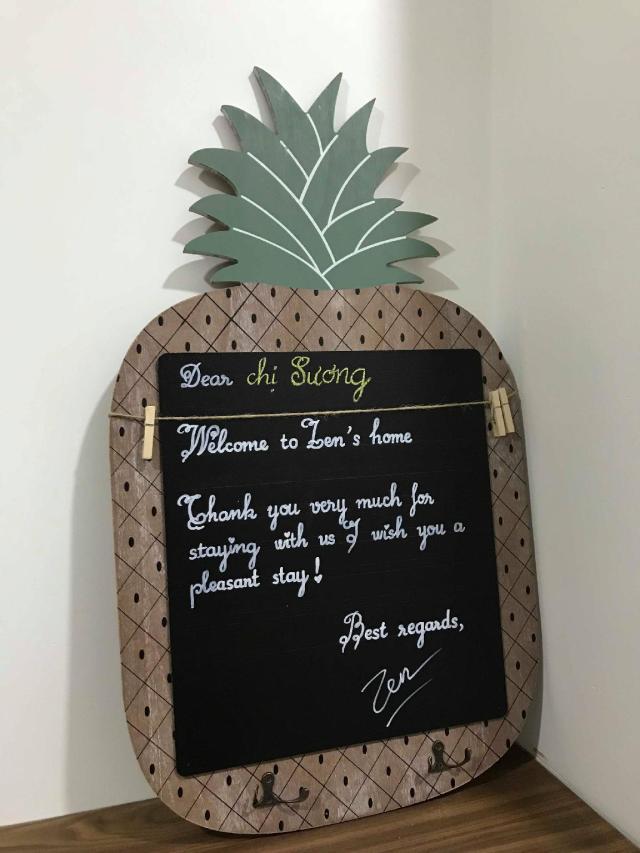 Dear chị Sương
Welcome to Zen's home
Thank you very much for
staying with us I wish you a
pleasant stay!
Best regards,
Zen